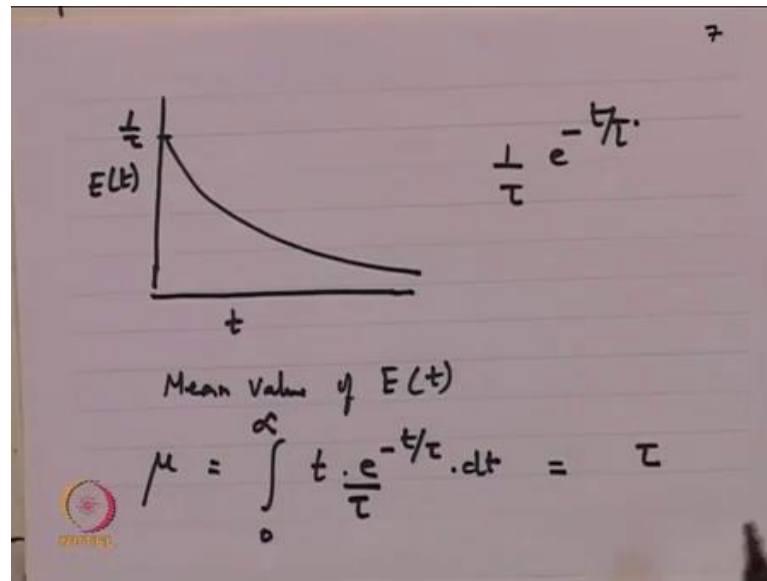 7
1/τ
E(t)
1/τ e^{-t/τ}.
t
Mean Value of E(t)
μ = ∫₀^∝ t . e^{-t/τ}/τ . dt = τ
NPTEL